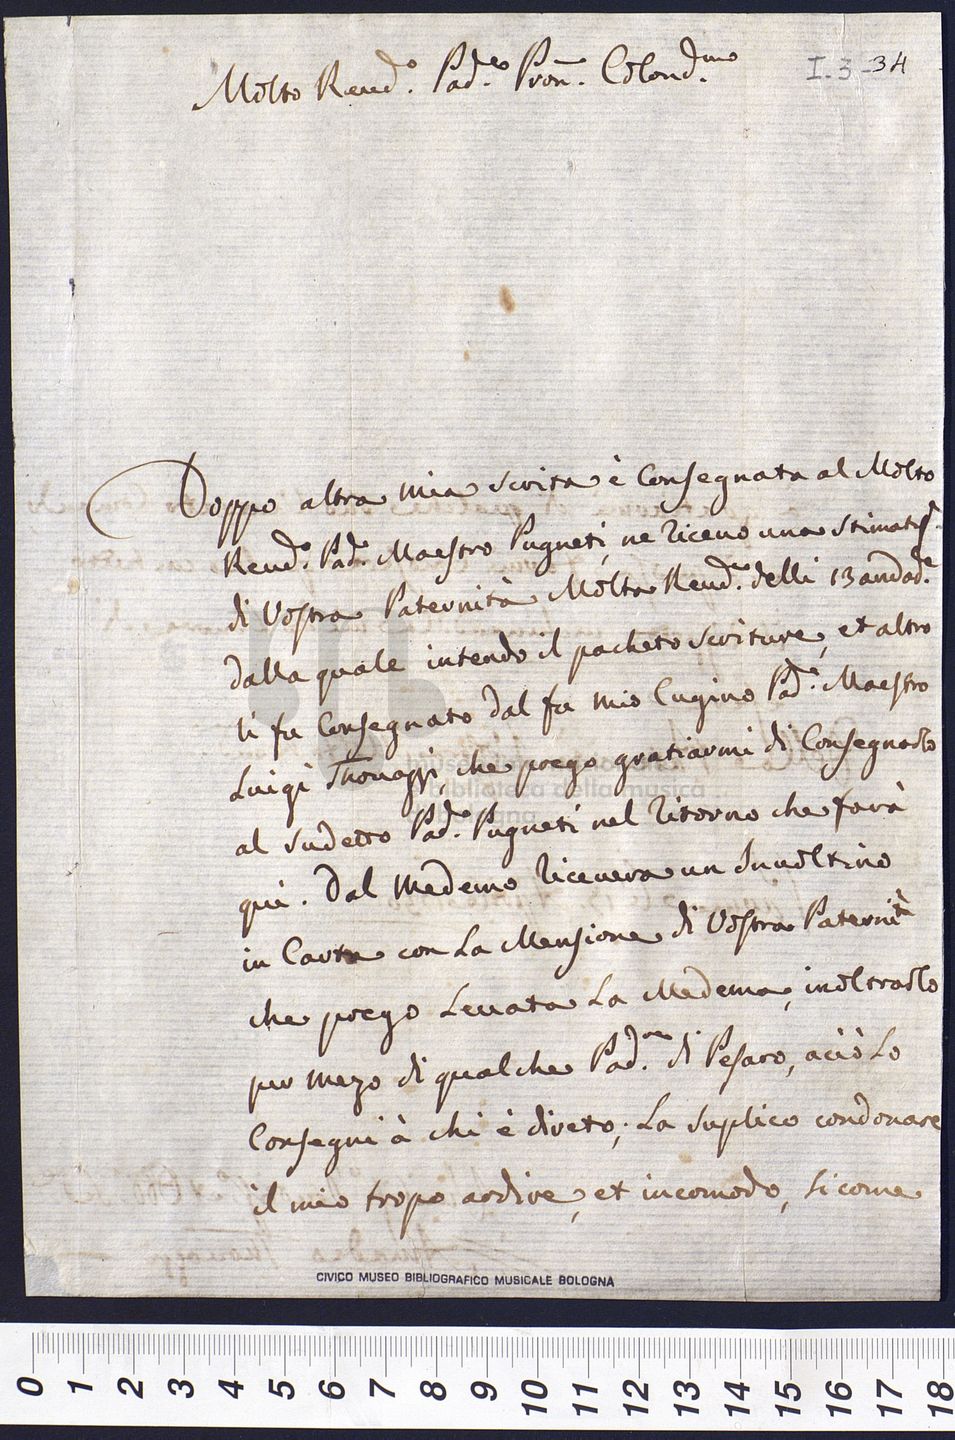 I.3-34
Molto Reud.o Pad.e Pron. Colend.mo
Doppo altra mia scrita è Consegnata al Molto
Reud.o Pad.e Maestro Pugneti, ne riceuo una stimatis.
di Vostra Paternità Molto Reud.a delli 13 andad.e
dalla quale intendo il pacheto scriture, et altro
li fu Consegnato dal fu mio Cugino Pad.e Maestro
Luigi Thomaggi, che prego gratiarmi di Consegnarlo
al sudetto Pad.e Pugneti nel ritorno che farà
qui. Dal Medemo riceuera un Inuoltino
in Carta con La Mensione di Vostra Paternità
che prego Leuata La Medema, inoltrarlo
per mezo di qualche Pad.re di Pesaro, aciò Lo
Consegni à chi è direto; La suplico condonare
il mio tropo ardire, et incomodo, si come
museo internazionale
e biblioteca della musica
di bologna
CIVICO MUSEO BIBLIOGRAFICO MUSICALE BOLOGNA
0 1 2 3 4 5 6 7 8 9 10 11 12 13 14 15 16 17 18